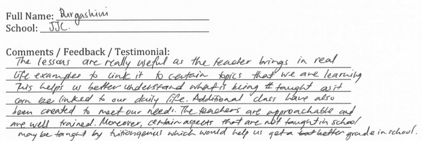 Full Name: Durgashini
School: JJC
Comments / Feedback / Testimonial:
The lessons are really useful as the teacher brings in real
life examples to link it to certain topics that we are learning
This helps us better understand what is being taught as it
can be linked to our daily life. Additional class have also
been created to meet our needs. The teachers are approachable and
are well trained. Moreover, certain aspects that are not taught in school
may be taught by tuitiongenius which would help us get a better grade in school.